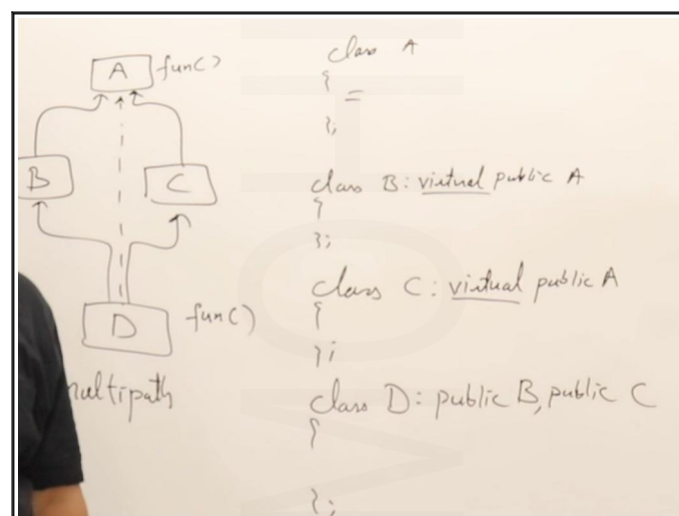 A fun()
B C
D fun()
multipath
class A
{
=
};
class B: virtual public A
{
};
class C: virtual public A
{
};
class D: public B, public C
{
};